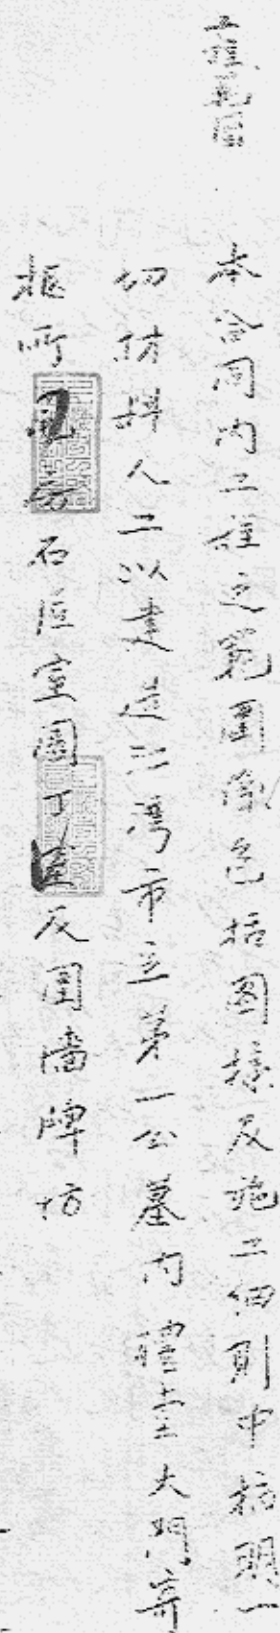 工程範圍
本合同內工程之範圍係包括圖樣及施工細則中指明一
切材料人工以建造江灣市立第一公墓內禮堂大門寄
柩所 石 室園丁 及圍墻牌坊